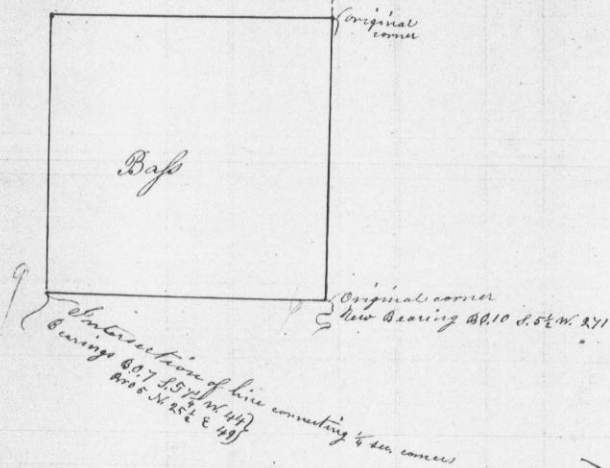 Original
corner
Bass
Original corner
New Bearing B.O. 10 S. 5½ W. 271
Intersection of line connecting ¼ sec. corners
Bearings B.O. 7 S. 57¼ W. 44
N. 25½ E 49